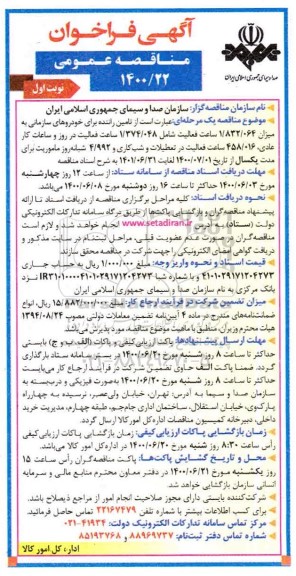 آگهی فراخوان
مناقصه عمومی
۱۴۰۰/۲۲
نوبت اول
صدا و سیمای جمهوری اسلامی ایران
نام سازمان مناقصه‌گزار: سازمان صدا و سیمای جمهوری اسلامی ایران
موضوع مناقصه یک مرحله‌ای: عبارت است از تامین راننده برای خودروهای سازمانی به
میزان ۱/۸۳۲/۰۶۴ ساعت فعالیت شامل ۱/۳۷۴/۰۴۸ ساعت فعالیت در روز و ساعات کار
عادی، ۴۵۸/۰۱۶ ساعت فعالیت در تعطیلات و شب‌کاری و ۴/۹۹۲ شبانه‌روز ماموریت برای
مدت یکسال از تاریخ ۱۴۰۰/۰۷/۰۱ لغایت ۱۴۰۱/۰۶/۳۱ به شرح اسناد مناقصه
مهلت دریافت اسناد مناقصه از سامانه ستاد: از ساعت ۱۲ روز چهارشنبه
مورخ ۱۴۰۰/۰۶/۰۳ حداکثر تا ساعت ۱۶ روز دوشنبه مورخ ۱۴۰۰/۰۶/۰۸ می‌باشد.
نحوه دریافت اسناد: کلیه مراحل برگزاری مناقصه از دریافت اسناد تا ارائه
پیشنهاد مناقصه‌گران و بازگشایی پاکت‌ها از طریق درگاه سامانه تدارکات الکترونیکی
دولت (ستاد) www.setadiran.ir انجام خواهد شد و لازم است
مناقصه‌گران در صورت عدم عضویت قبلی، مراحل ثبت‌نام در سایت مذکور و
دریافت گواهی امضای الکترونیکی را جهت شرکت در مناقصه محقق سازند.
قیمت اسناد و نحوه واریز وجه: مبلغ ۱/۰۰۰/۰۰۰ ریال به حساب جاری
بانک مرکزی به نام سازمان صدا و سیمای جمهوری اسلامی ایران
میزان تضمین شرکت در فرآیند ارجاع کار: مبلغ ریال، انواع
ضمانتنامه‌های مندرج در ماده ۴ آیین‌نامه تضمین معاملات دولتی مصوب ۱۳۹۴/۰۸/۲۴
هیات محترم وزیران منطبق با ماهیت موضوع مناقصه، مورد پذیرش می‌باشد.
مهلت ارسال پیشنهادها: پاکت ارزیابی کیفی و پاکات (الف، ب و ج) بایستی
حداکثر تا ساعت ۸ روز شنبه مورخ ۱۴۰۰/۰۶/۲۰ در بستر سامانه ستاد بارگذاری
گردد. ضمنا پاکت الف حاوی تضمین شرکت در فرآیند ارجاع کار می‌بایست
حداکثر تا ساعت ۸ روز شنبه مورخ ۱۴۰۰/۰۶/۲۰ به‌صورت فیزیکی و دربسته به
سازمان صدا و سیما به آدرس: تهران، خیابان ولی‌عصر، نرسیده به چهارراه
پارک‌وی، خیابان استقلال، ساختمان اداری جام‌جم، طبقه چهارم، مدیریت خرید
داخلی، دبیرخانه کمیسیون مناقصات اداره کل امور کالا ارسال گردد.
زمان بازگشایی پاکات ارزیابی کیفی: زمان بازگشایی پاکات ارزیابی کیفی
رأس ساعت ۸:۳۰ روز شنبه مورخ ۱۴۰۰/۰۶/۲۰ در اداره کل امور کالا می‌باشد.
محل و تاریخ گشایش پاکت‌ها: پاکت مناقصه‌گران رأس ساعت ۱۵
روز یکشنبه مورخ ۱۴۰۰/۰۶/۲۱ در دفتر معاون محترم منابع مالی و سرمایه
انسانی سازمان بازگشایی خواهد شد.
شرکت‌کننده بایستی دارای مجوز صلاحیت انجام امور از مراجع ذیصلاح باشد.
برای کسب اطلاعات بیشتر با شماره تلفن ۲۲۱۶۷۴۷۹ تماس حاصل فرمایید.
مرکز تماس سامانه تدارکات الکترونیک دولت: ۰۲۱-۴۱۹۳۴
شماره تماس دفتر ثبت‌نام: ۸۸۹۶۹۷۳۷ و ۸۵۱۹۳۷۶۸
اداره کل امور کالا